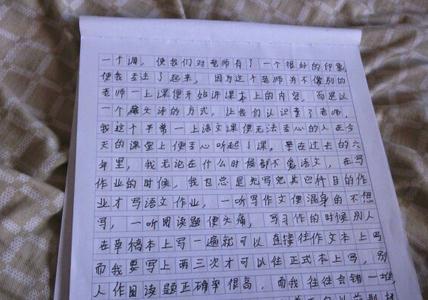 一个调，使我们对老师有了一个很好的印象，
使我喜欢了起来，因为这个老师并不像别的
老师一上课便开始讲课本上的内容，而是以
一个的方式，让我们认识了老师，
我这个平常一上语文课便无法专心的人在今
天的课堂上便专心听起了课，要在过去的六
年里，我无论在什么时候都不爱语文，在写
作业的时候，我也总是先写完其它科目的作
业才写语文作业，一听写作文便浑身的不想
写，一听阅读题便头痛，写习作的时候别人
在草稿本上写一遍就可以直接往作文本上写
而我要写上两三次才可以往正式本上写，别
人作阅读题正确率很高，而我往往会错一堆